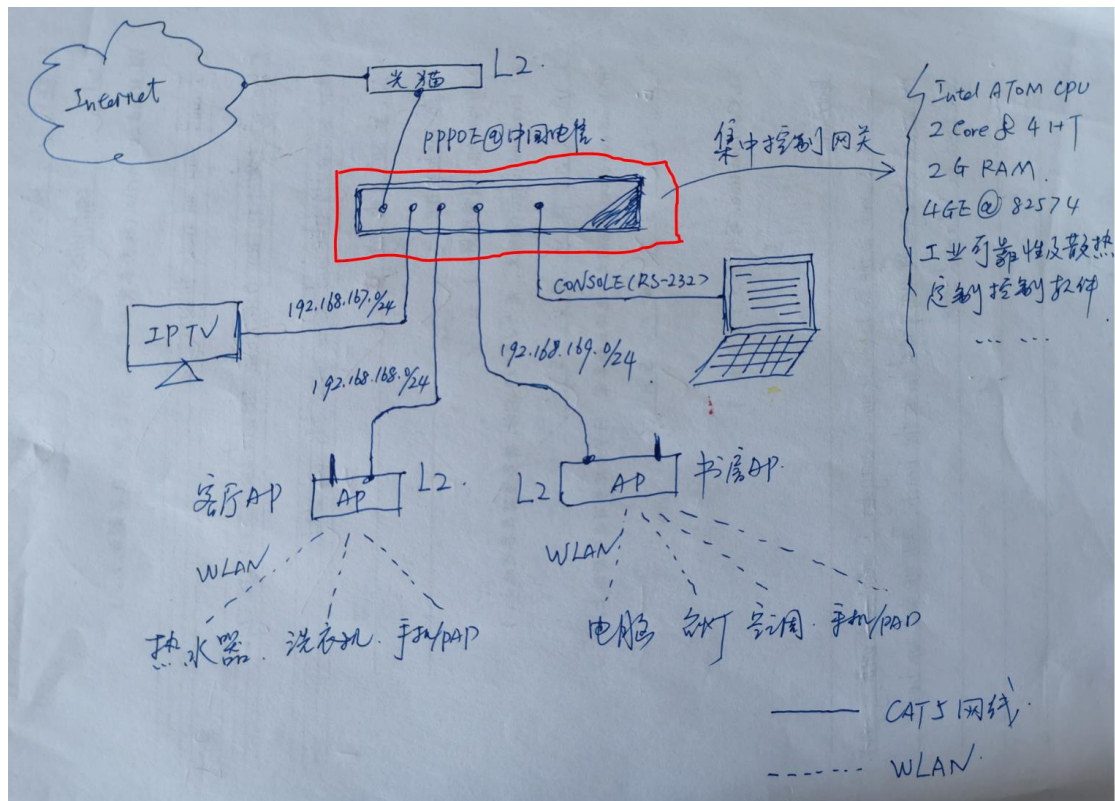 Internet
光猫
L2.
PPPOE@中国电信.
集中控制网关
Intel ATOM CPU
2 Core & 4 HT
2G RAM.
4GE@82574
工业可靠性及散热
定制控制软件.
... ...
CONSOLE(RS-232)
192.168.167.0/24
IPTV
192.168.168.0/24
192.168.169.0/24
客厅AP
AP
L2.
L2
AP
书房AP.
WLAN
WLAN.
热水器.
洗衣机.
手机/PAD
电脑
台灯
空调.
手机/PAD
CAT5网线.
WLAN.